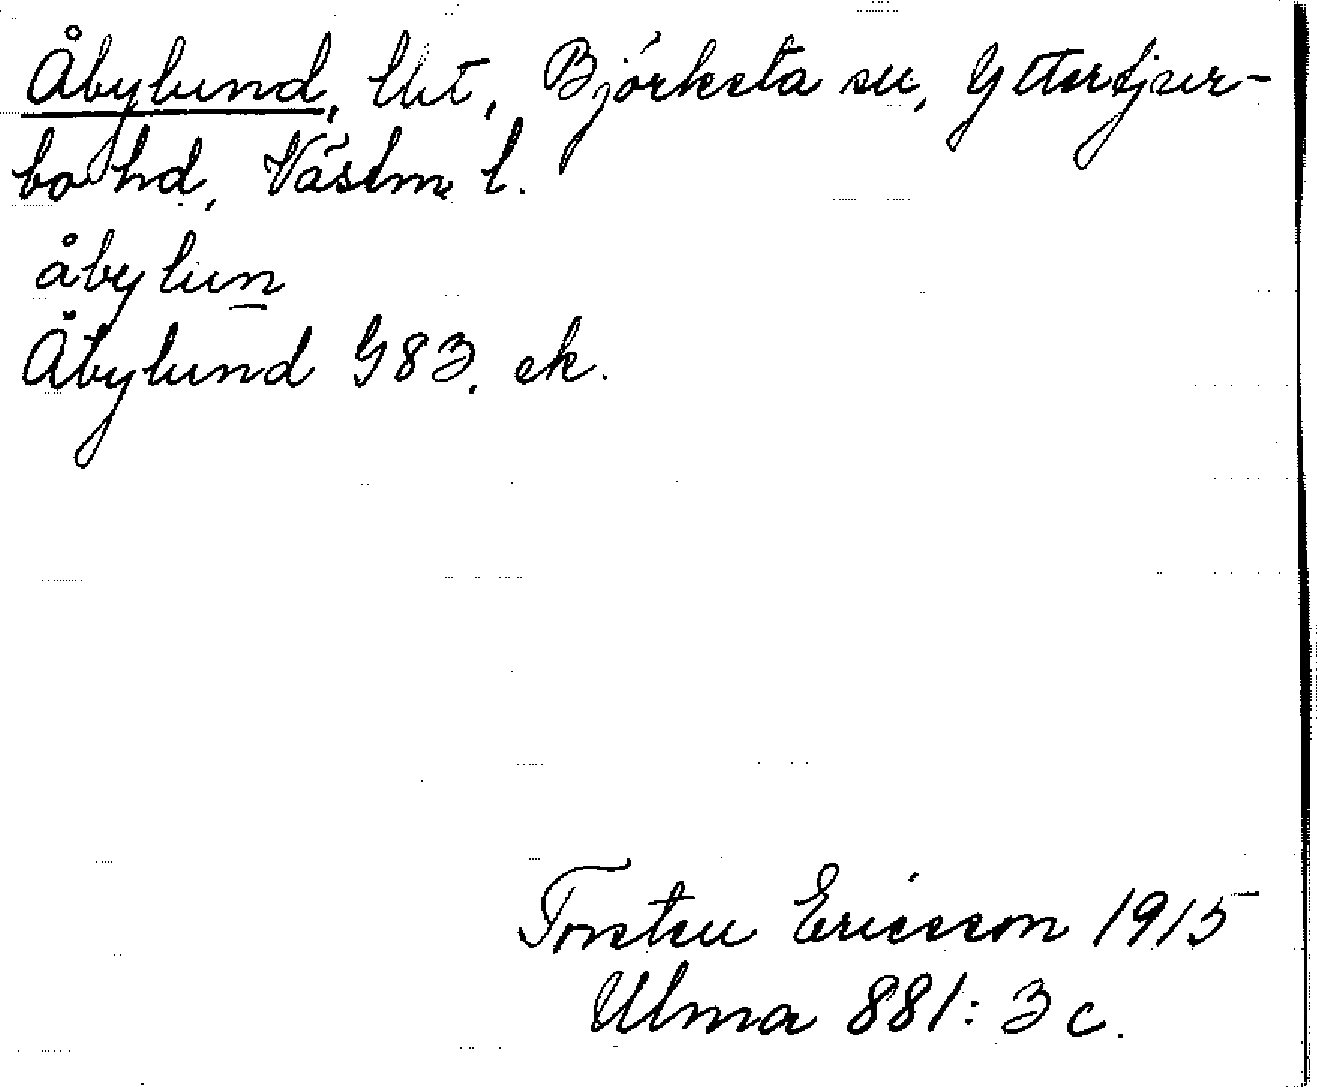 Åbylund, lht, Björksta sn, Yttertjur-
bo hd, Västm. l.
åbylun
Åbylund G83. ek.
Torsten Ericsson 1915
Ulma 881: 3 c.